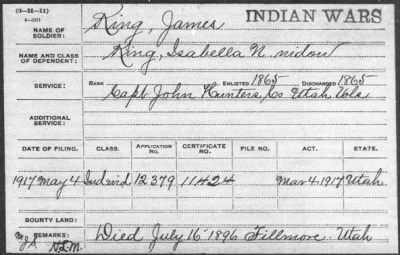 (3-RE-11)
INDIAN WARS
NAME OF SOLDIER: King, James
NAME AND CLASS OF DEPENDENT: King, Isabella N. widow
SERVICE: RANK ENLISTED 1865 DISCHARGED 1865
Capt. John Hunters, Co Utah Vols
ADDITIONAL SERVICE:
DATE OF FILING. CLASS. APPLICATION NO. CERTIFICATE NO. FILE NO. ACT. STATE.
1917 May 4 Ind wid 12379 11424 Mar 4 1917 Utah
BOUNTY LAND:
REMARKS: Died July 16 1896 Fillmore. Utah